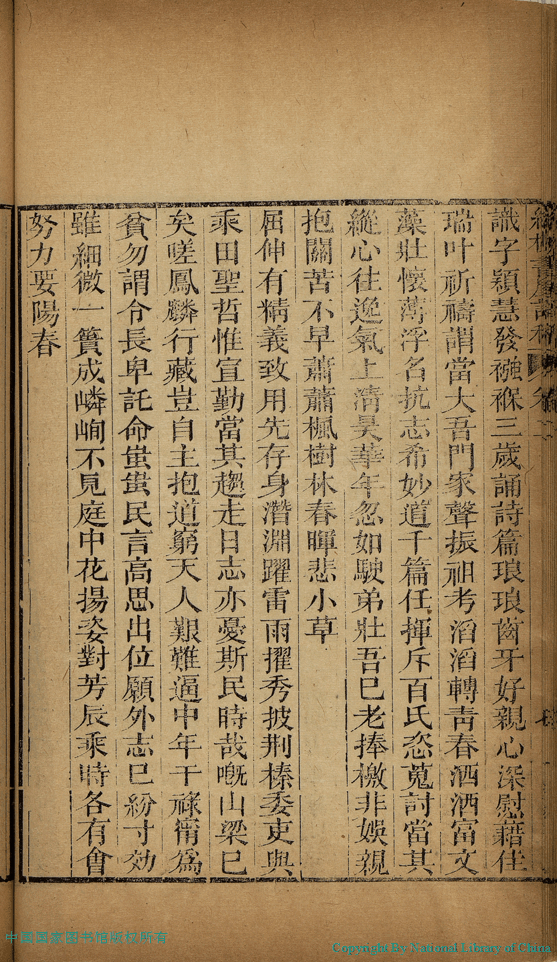 識字穎慧發襁褓三歲誦詩篇琅琅齒牙好親心深慰藉佳
瑞叶祈禱謂當大吾門家聲振祖考滔滔轉青春洒洒富文
藻壯懷薄浮名抗志希妙道千篇任揮斥百氏恣蒐討當其
縱心往逸氣上清昊華年忽如駛弟壯吾已老捧檄非娛親
抱關苦不早蕭蕭楓樹林春暉悲小草
屈伸有精義致用先存身潛淵躍雷雨擢秀披荆榛委吏與
乘田聖哲惟宣勤當其趨走日志亦憂斯民時哉嘅山梁已
矣嗟鳳麟行藏豈自主抱道窮天人艱難逼中年干祿甯為
貧勿謂令長卑託命蚩蚩民言高思出位願外志已紛寸効
雖細微一簣成嶙峋不見庭中花揚姿對芳辰乘時各有會
努力要陽春
中國國家图书馆版权所有
Copyright By National Library of China